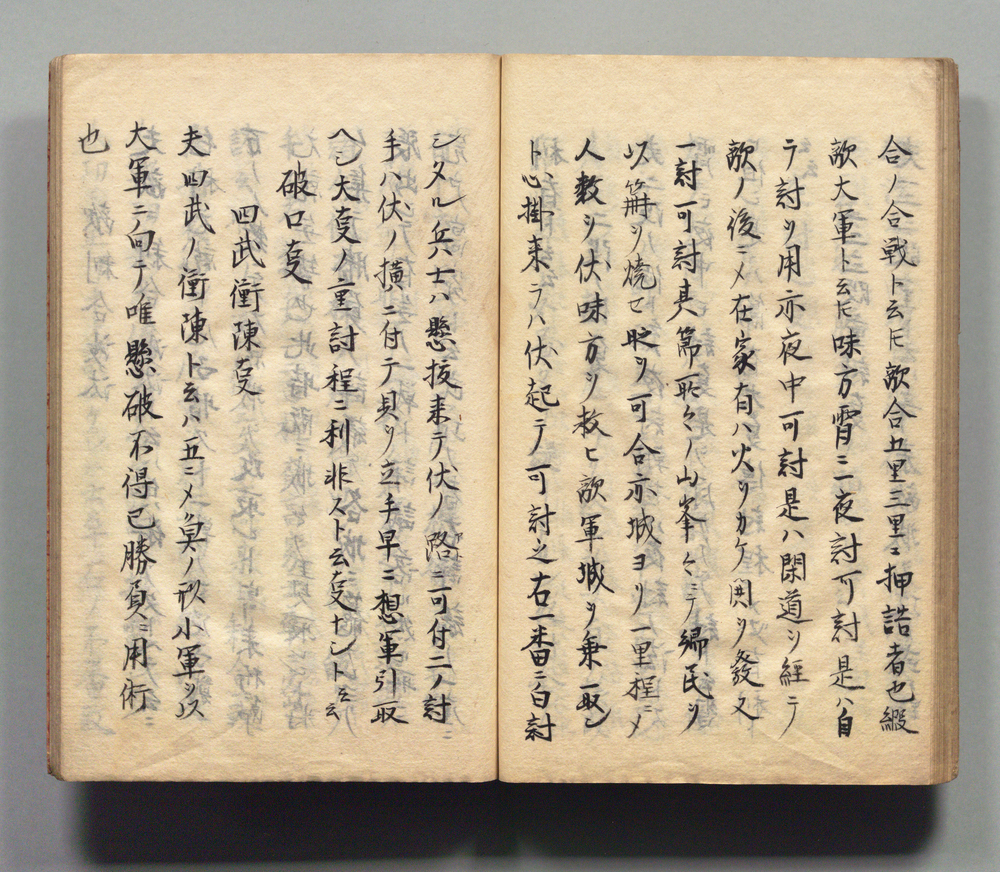 合ノ合戦ト云ヒ敵合五里三里ニ押詰者也縦
敵大軍ト云ヒ味方霄ニ夜討可討是ハ自
ラ討ヲ用亦夜中可討是ハ閑道ヲ経テ
敵ノ後ニメ在家有ハ火ヲカケ関ヲ發又
一討可討其篇所々ノ山峯々ニテ郷民ヲ
以篝ヲ焼セ 可合亦城ヨリ一里程ニメ
人数ヲ伏味方ヲ救ヒ敵軍城ヲ乗取シ
ト心掛来ラハ伏起テ可討之右一番ニ白討
シタル兵士ハ懸抜来テ伏ノ路ニ可付二ノ討
手ハ伏ノ擴ニ付テ貝ヲ立手早ニ想軍引取
ヘシ大㕝ノ重討程ニ利非スト云㕝ナシト云云
破口㕝
四武衝陳㕝
夫四武ノ衝陳ト云ハ五ニメ ノ形小軍ヲ以
大軍ニ向テ唯懸破不得已勝負ニ用術
也